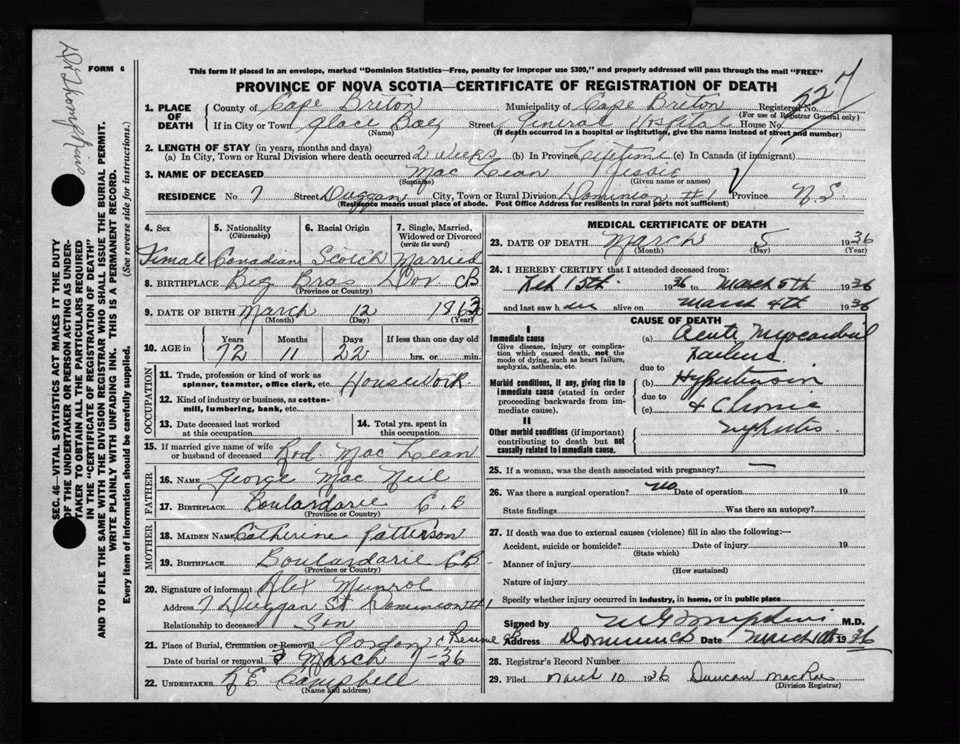 FORM 6
This form if placed in an envelope, marked "Dominion Statistics—Free, penalty for improper use $300," and properly addressed will pass through the mail "FREE"
PROVINCE OF NOVA SCOTIA—CERTIFICATE OF REGISTRATION OF DEATH
1. PLACE OF DEATH
County of Cape Breton Municipality of Cape Breton Registered No.
(For use of Registrar General only)
If in City or Town Glace Bay Street General Hospital House No.
(Name) (If death occurred in a hospital or institution, give the name instead of street and number)
2. LENGTH OF STAY (in years, months and days)
(a) In City, Town or Rural Division where death occurred 2 weeks (b) In Province Lifetime (c) In Canada (if immigrant)
3. NAME OF DECEASED Mac Lean Jessie
(Surname) (Given name or names)
RESIDENCE No 7 Street Duggan City, Town or Rural Division Dominion #1 Province N.S.
(Residence means usual place of abode. Post Office Address for residents in rural parts not sufficient)
4. Sex 5. Nationality (Citizenship) 6. Racial Origin 7. Single, Married, Widowed or Divorced (write the word)
Female Canadian Scotch Married
8. BIRTHPLACE Big Bras Dor CB
(Province or Country)
9. DATE OF BIRTH March 12 1863
(Month) (Day) (Year)
10. AGE in Years Months Days If less than one day old
72 11 22 hrs. or min.
OCCUPATION
11. Trade, profession or kind of work as spinner, teamster, office clerk, etc. Housework
12. Kind of industry or business, as cotton-mill, lumbering, bank, etc.
13. Date deceased last worked at this occupation
14. Total yrs. spent in this occupation
15. If married give name of wife or husband of deceased Rod. Mac Lean
FATHER
16. NAME George Mac Neil
17. BIRTHPLACE Boulardarie C.B
(Province or Country)
MOTHER
18. MAIDEN NAME Catherine Patterson
19. BIRTHPLACE Boulardarie CB
(Province or Country)
20. Signature of informant Alex Munroe
Address 7 Duggan St Dominion #1
Relationship to deceased Son
21. Place of Burial, Cremation or Removal Gordon
Date of burial or removal March 7-36
22. UNDERTAKER Campbell
(Name and address)
MEDICAL CERTIFICATE OF DEATH
23. DATE OF DEATH March 5 1936
(Month) (Day) (Year)
24. I HEREBY CERTIFY that I attended deceased from:
Feb 15th 1936 to March 5th 1936
and last saw her alive on March 4th 1936
CAUSE OF DEATH
I
Immediate cause
Give disease, injury or complication which caused death, not the mode of dying, such as heart failure, asphyxia, asthenia, etc.
(a) Acute Myocardial Failure
due to
Morbid conditions, if any, giving rise to immediate cause (stated in order proceeding backwards from immediate cause).
(b) Hypertension
due to
(c) & Chronic Nephritis
II
Other morbid conditions (if important) contributing to death but not causally related to immediate cause.
25. If a woman, was the death associated with pregnancy? —
26. Was there a surgical operation? no Date of operation 19
State findings Was there an autopsy?
27. If death was due to external causes (violence) fill in also the following:—
Accident, suicide or homicide? Date of injury 19
(State which)
Manner of injury
(How sustained)
Nature of injury
Specify whether injury occurred in industry, in home, or in public place
Signed by M.D.
Address Dominion Date March 10th 1936
28. Registrar's Record Number
29. Filed March 10 1936 Duncan MacRae
(Division Registrar)
SEC. 46—VITAL STATISTICS ACT MAKES IT THE DUTY
OF THE UNDERTAKER OR PERSON ACTING AS UNDER-
TAKER TO OBTAIN ALL THE PARTICULARS REQUIRED
IN THE "CERTIFICATE OF REGISTRATION OF DEATH"
AND TO FILE THE SAME WITH THE DIVISION REGISTRAR WHO SHALL ISSUE THE BURIAL PERMIT.
WRITE PLAINLY WITH UNFADING INK. THIS IS A PERMANENT RECORD.
Every item of information should be carefully supplied. (See reverse side for instructions.)